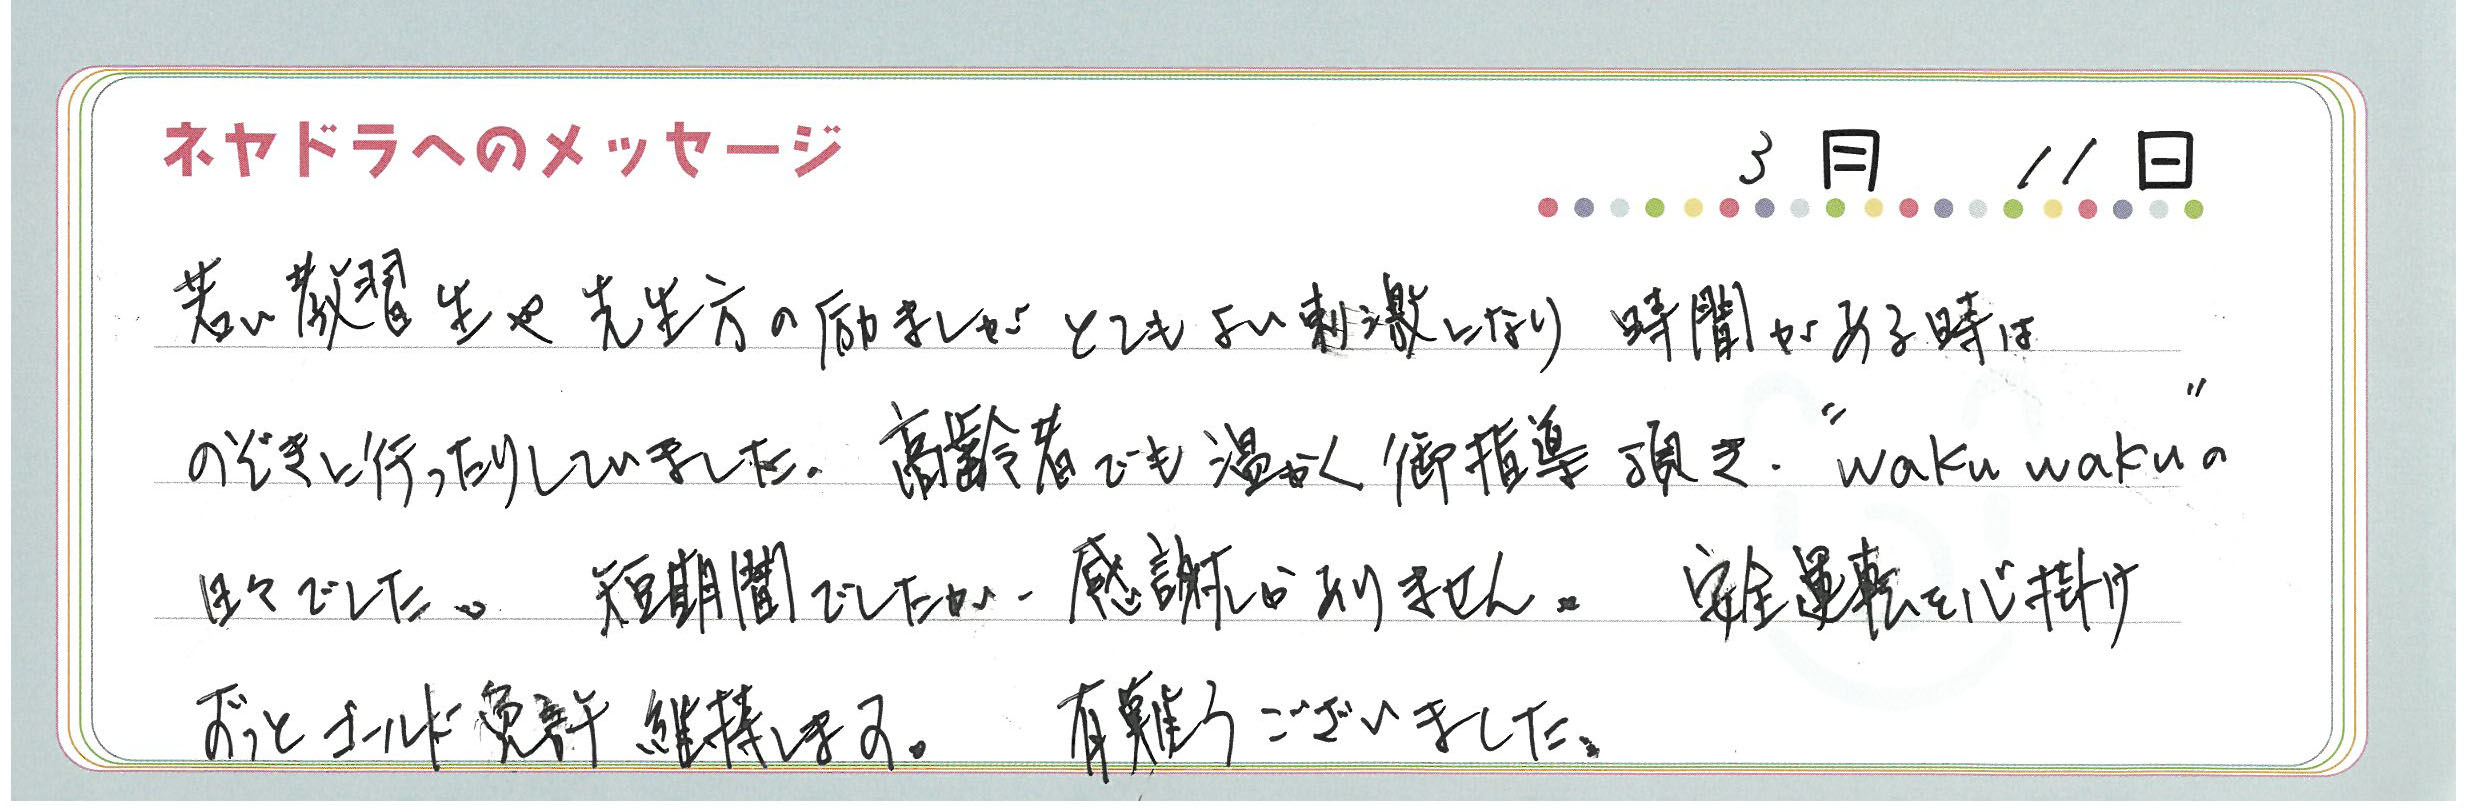 ネヤドラへのメッセージ
3月 11日
若い教習生や先生方の励ましがとてもよい刺激になり 時間がある時は
のぞきに行ったりしていました。高齢者でも温かく御指導頂き、"waku waku"の
日々でした。 短期間でしたが、感謝しかありません。 安全運転を心掛け
ずっとゴールド免許維持します。 有難うございました。